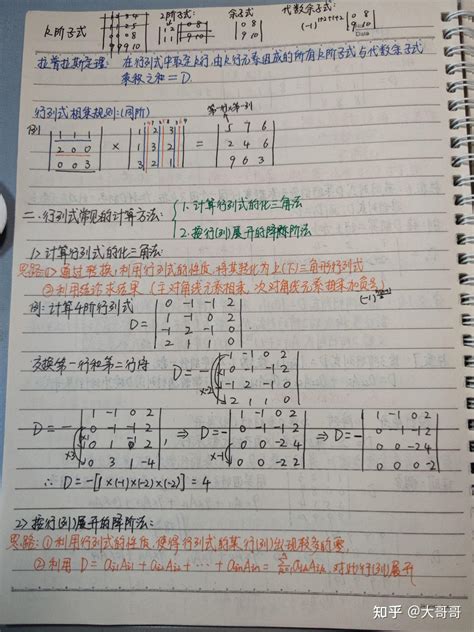 k阶子式 2阶子式: 余子式 代数余子式:
拉普拉斯定理: 在行列式中取定k行,由k行元素组成的所有k阶子式与代数余子式
乘积之和=D.
行列式相乘规则:(同阶) 第一行×第一列
例 | 1 1 1 | × | 1 2 3 | = | 5 7 6 |
| 2 0 0 | | 1 3 2 | | 2 4 6 |
| 0 0 3 | | 3 2 1 | | 9 6 3 |
二.行列式常见的计算方法: { 1.计算行列式的化三角法
2.按行(列)展开的降阶法
1> 计算行列式的化三角法:
思路:① 通过变换,利用行列式的性质,将其转化为上(下)三角形行列式
② 利用结论求结果 (主对角线元素相乘,次对角线元素相乘和负号)
例:计算4阶行列式
D= | 0 -1 -1 2 |
| 1 -1 0 2 |
| -1 2 -1 0 |
| 2 1 1 0 |
交换第一行和第二行得 D=- | 1 -1 0 2 |
| 0 -1 -1 2 |
| -1 2 -1 0 |
| 2 1 1 0 |
D=- | 1 -1 0 2 | ⇒ D=- | 1 -1 0 2 | ⇒ D=- | 1 -1 0 2 |
| 0 -1 -1 2 | | 0 -1 -1 2 | | 0 -1 -1 2 |
| 0 1 -1 2 | | 0 0 -2 4 | | 0 0 -2 4 |
| 0 3 1 -4 | | 0 0 -2 2 | | 0 0 0 -2 |
∴ D=-[1×(-1)×(-2)×(-2)]=4
2> 按行(列)展开的降阶法:
思路:① 利用行列式的性质,使得行列式的某行(列)出现较多的零
② 利用 D=ai1Ai1+ai2Ai2+…+ainAin 对该行(列)展开
知乎 @大哥哥